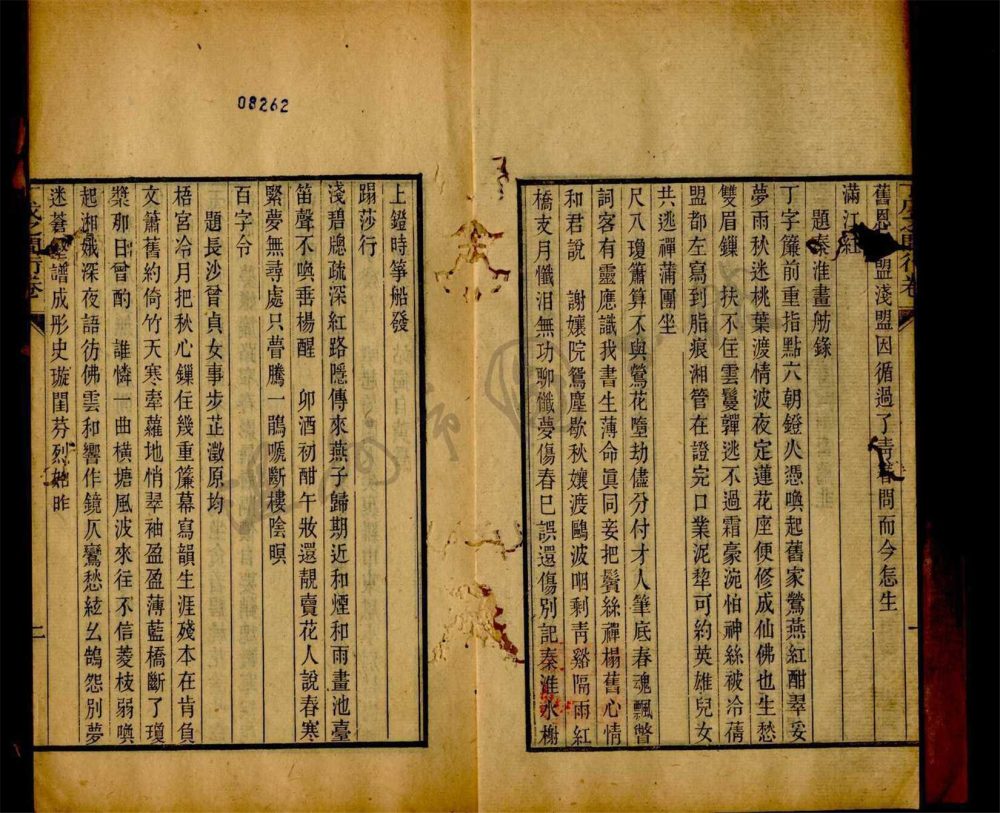 舊恩 盟淺盟因循過了 問而今怎生
滿江紅
題秦淮畫舫錄
丁字簾前重指點六朝鐙火憑喚起舊家鶯燕紅酣翠妥
夢雨秋迷桃葉渡情波夜定蓮花座便修成仙佛也生愁
雙眉鏁 扶不住雲鬟嚲逃不過霜豪涴怕神絲被冷蒨
盟都左寫到脂痕湘管在證完口業泥犂可約英雄兒女
共逃禪蒲團坐
尺八瓊簫算不與鶯花墮劫儘分付才人筆底春魂飄瞥
詞客有靈應識我書生薄命眞同妾把鬢絲禪榻舊心情
和君說 謝孃院鴛塵歇秋孃渡鷗波咽剩靑谿隔雨紅
橋支月懺泪無功聊懺夢傷春已誤還傷別記秦淮水榭
上鐙時箏船發
蹋莎行
淺碧牕疏深紅路隱傳來燕子歸期近和煙和雨畫池臺
笛聲不喚垂楊醒 卯酒初酣午妝還靚賣花人說春寒
緊夢無尋處只瞢騰一鵑嗁斷樓陰暝
百字令
題長沙曾貞女事步芷澂原均
梧宮冷月把秋心鏁住幾重簾幕寫韻生涯殘本在肯負
文簫舊約倚竹天寒牽蘿地悄翠袖盈盈薄藍橋斷了瓊
漿那日曾酌 誰憐一曲橫塘風波來往不信菱枝弱喚
起湘娥深夜語彷佛雲和響作鏡仄鸞愁絃幺鵠怨別夢
迷蒼 譜成彤史璇閨芬烈始昨
一
二
08262